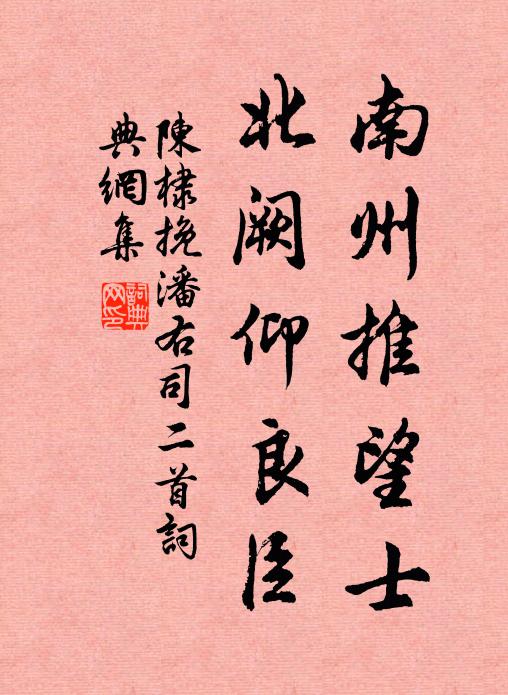 南州推望士
北阙仰良臣
陳棣挽潘右司二首詞
典網集
詞典网印